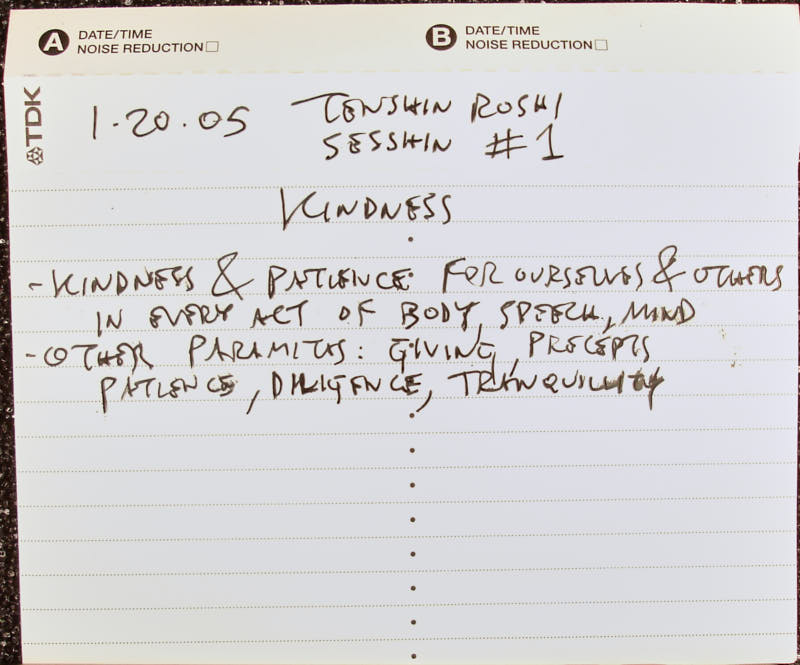 A DATE/TIME NOISE REDUCTION
B DATE/TIME NOISE REDUCTION
TDK
1-20-05 TENSHIN ROSHI
SESSHIN #1
KINDNESS
- KINDNESS & PATIENCE FOR OURSELVES & OTHERS
IN EVERY ACT OF BODY, SPEECH, MIND
- OTHER PARAMITAS: GIVING, PRECEPTS
PATIENCE, DILIGENCE, TRANQUILITY